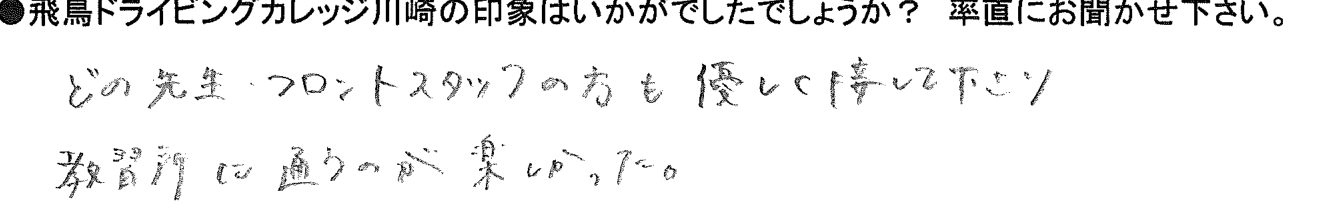 ●飛鳥ドライビングカレッジ川崎の印象はいかがでしたでしょうか？ 率直にお聞かせ下さい。
どの先生・フロントスタッフの方も優しく接して下さり
教習所に通うのが楽しかった。